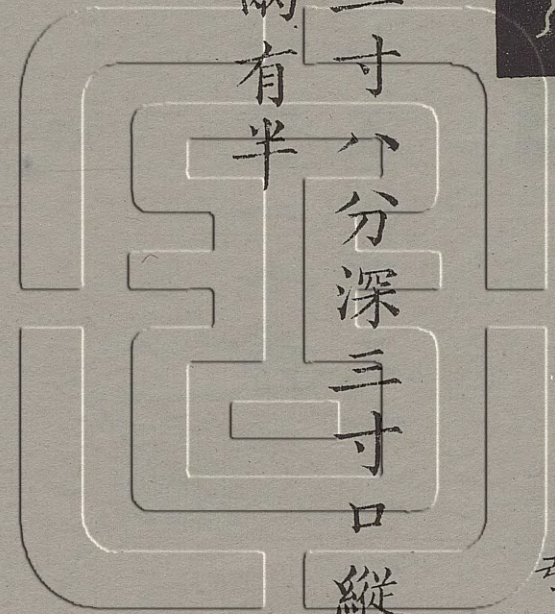 寸八分深三寸口縱
有半